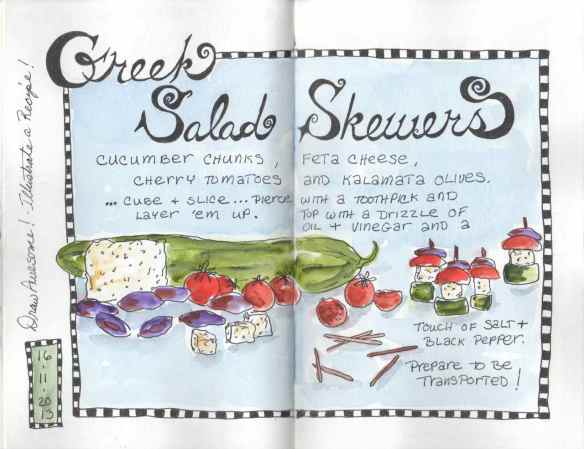 Greek
Salad Skewers
CUCUMBER CHUNKS, FETA CHEESE,
CHERRY TOMATOES AND KALAMATA OLIVES.
... CUBE + SLICE... PIERCE WITH A TOOTHPICK AND
LAYER 'EM UP. TOP WITH A DRIZZLE OF
OIL + VINEGAR AND A
TOUCH OF SALT +
BLACK PEPPER.
PREPARE TO BE
TRANSPORTED!
Draw Awesome! Illustrate a Recipe!
16
11
20
13